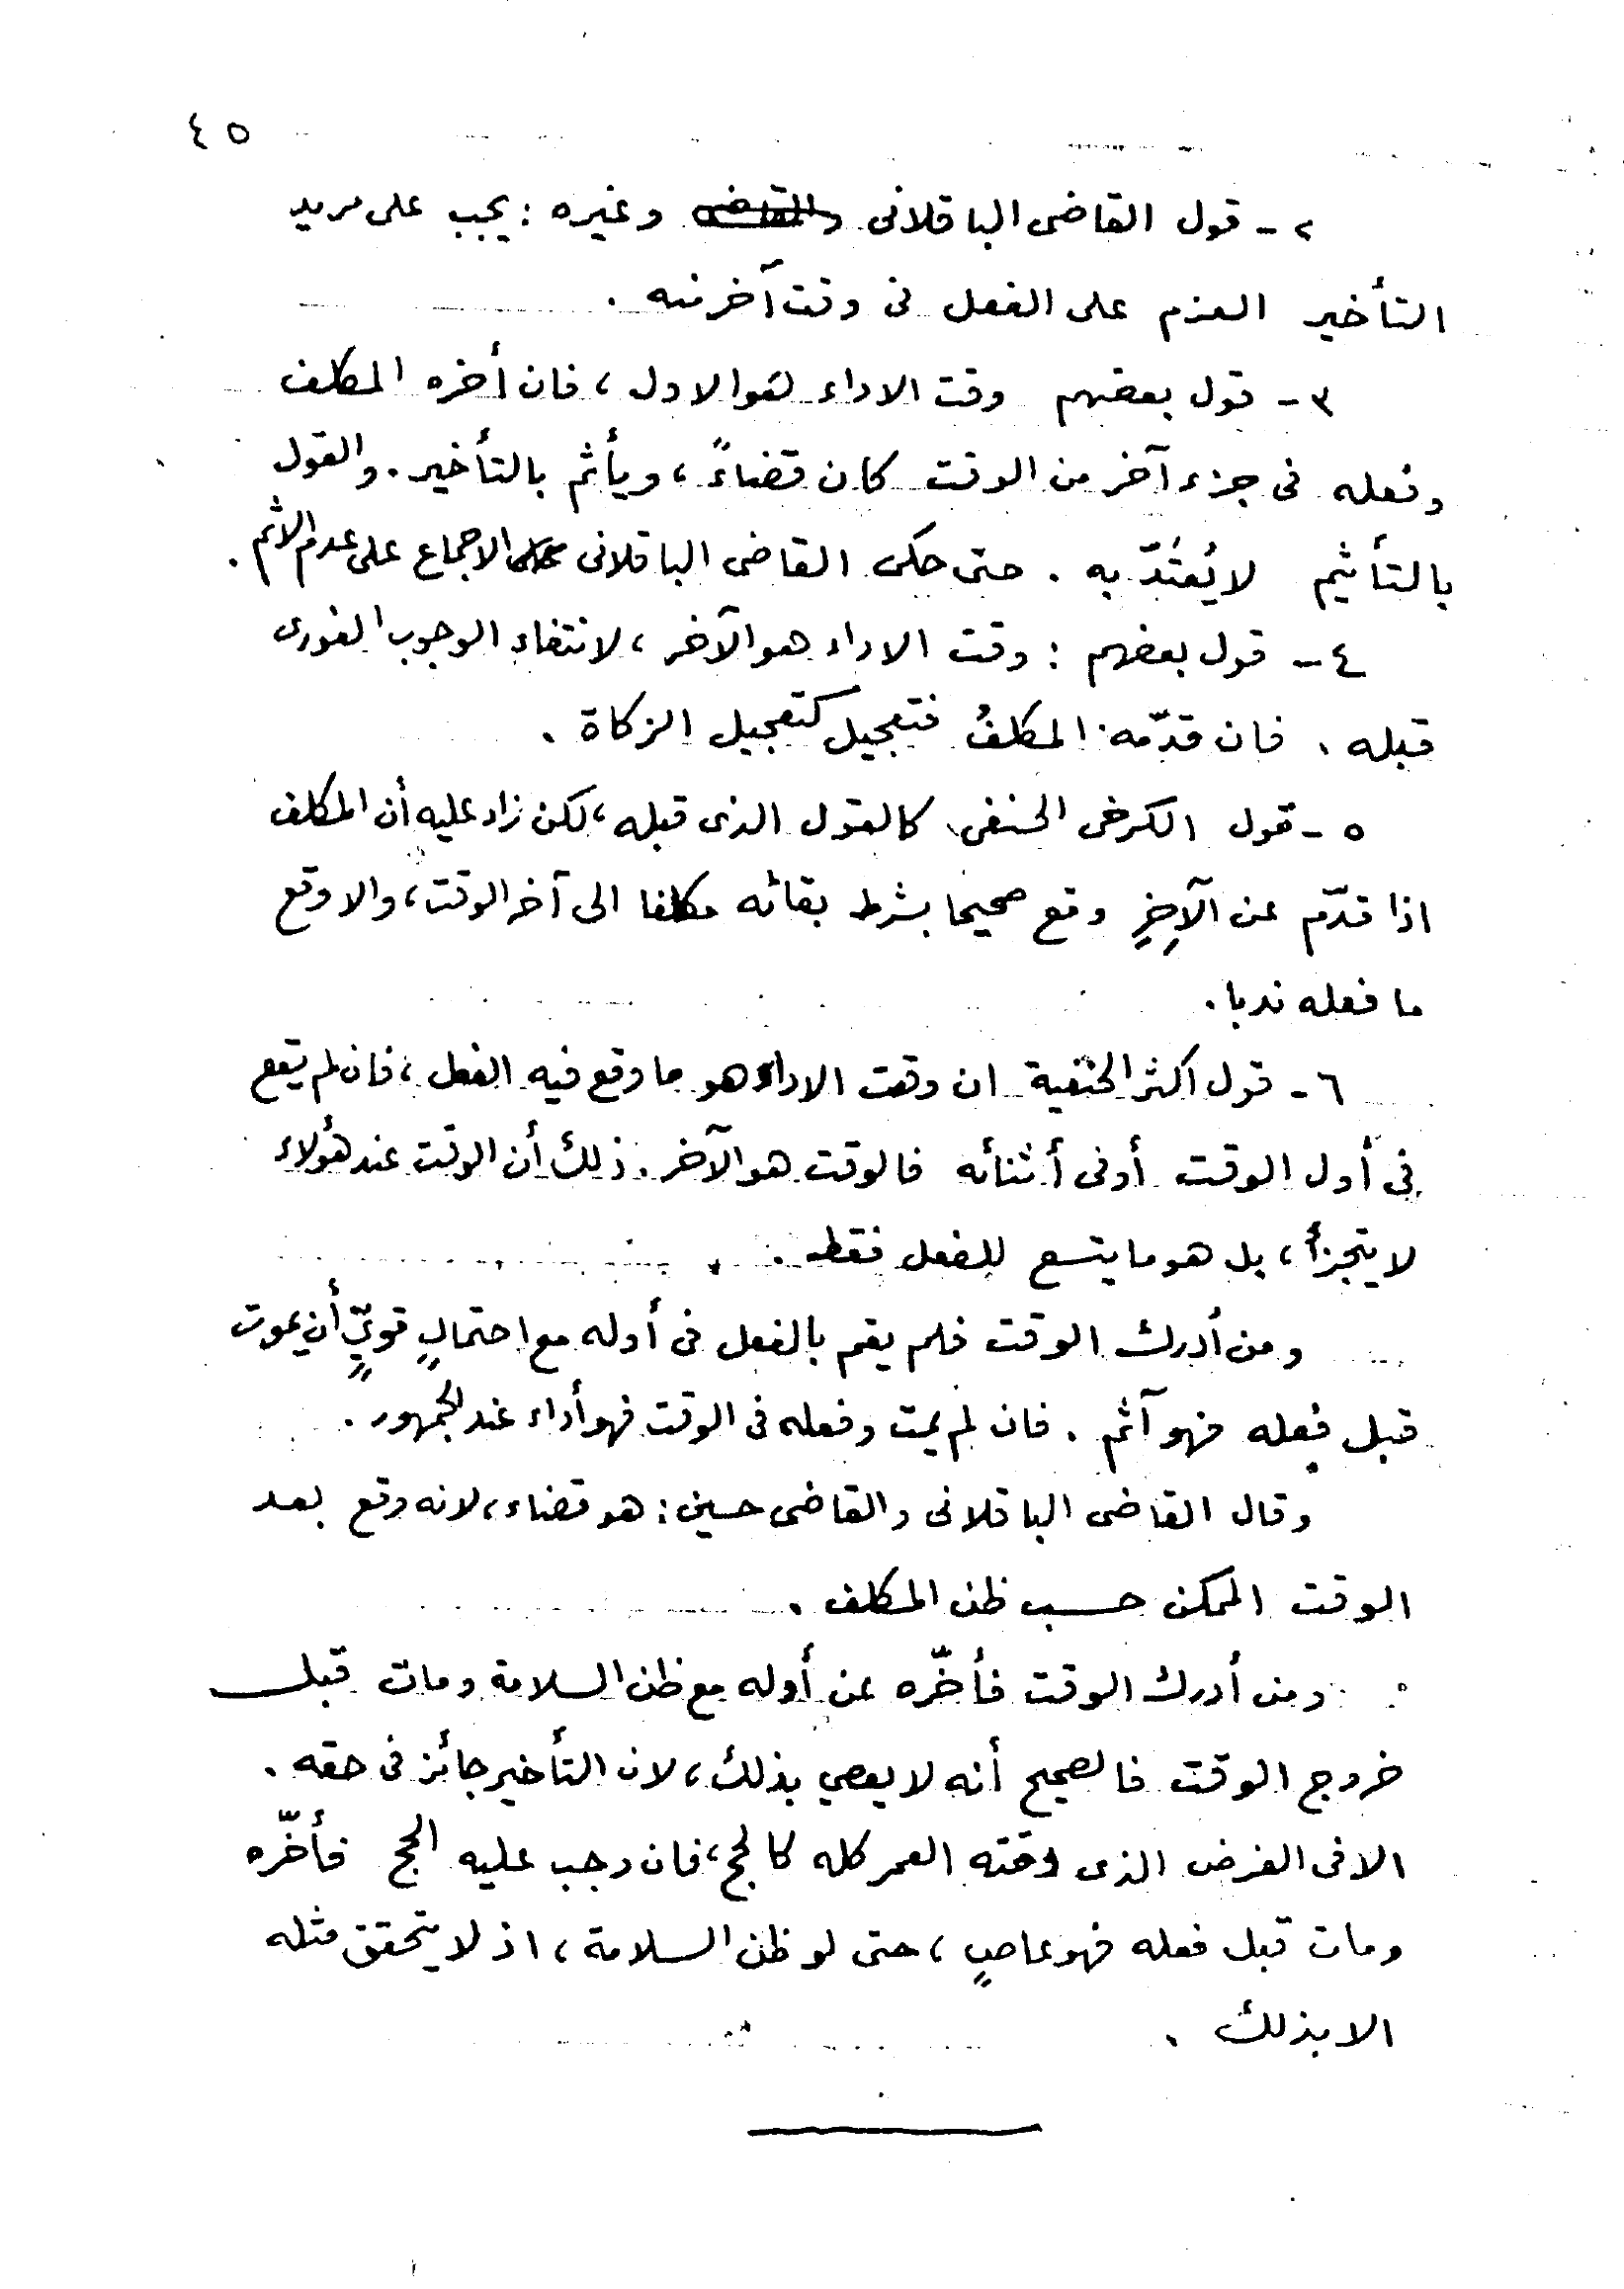 ٤٥
٢ - قول القاضى الباقلانى وغيره : يجب على مريد
التأخير العزم على الفعل فى وقت آخر منه .
٣ - قول بعضهم وقت الاداء هو الاول ، فان أخره المكلف
وفعله فى جزء آخر من الوقت كان قضاءً ، ويأثم بالتأخير . والقول
بالتأثيم لا يُعتُدّ به . حتى حكى القاضى الباقلانى الاجماع على عدم الاثم .
٤ - قول بعضهم : وقت الاداء هو الآخر ، لانتفاء الوجوب الفورى
قبله . فان قدّمه المكلفُ فتعجيل كتعجيل الزكاة .
٥ - قول الكرخى الحنفى كالقول الذى قبله ، لكن زاد عليه أن المكلف
اذا قدّم عن الآخِرِ وقع صحيحا بشرط بقائه مكلفا الى آخر الوقت ، والا وقع
ما فعله ندبا .
٦ - قول اكثر الحنفية ان وقت الاداء هو ما وقع فيه الفعل ، فان لم يقع
فى أول الوقت أوفى أثنائه فالوقت هو الآخر . ذلك أن الوقت عند هؤلاء
لا يتجزأ ، بل هو ما يتسع للفعل فقط .
ومن أدرك الوقت فلم يقم بالفعل فى أوله مع احتمالٍ قويٍّ أن يموت
قبل فعله فهو آثم . فان لم يمت وفعله فى الوقت فهو أداء عند الجمهور .
وقال القاضى الباقلانى والقاضى حسين : هو قضاء ، لانه وقع بعد
الوقت الممكن حسب ظن المكلف .
ومن أدرك الوقت فأخّره عن أوله مع ظن السلامة ومات قبل
خروج الوقت فالصحيح أنه لا يعصي بذلك ، لان التأخير جائز فى حقه .
الا فى الفرض الذى وقته العمر كله كالحج ، فان وجب عليه الحج فأخّره
ومات قبل فعله فهو عاصٍ ، حتى لو ظن السلامة ، اذ لا يتحقق مثله
الا بذلك .